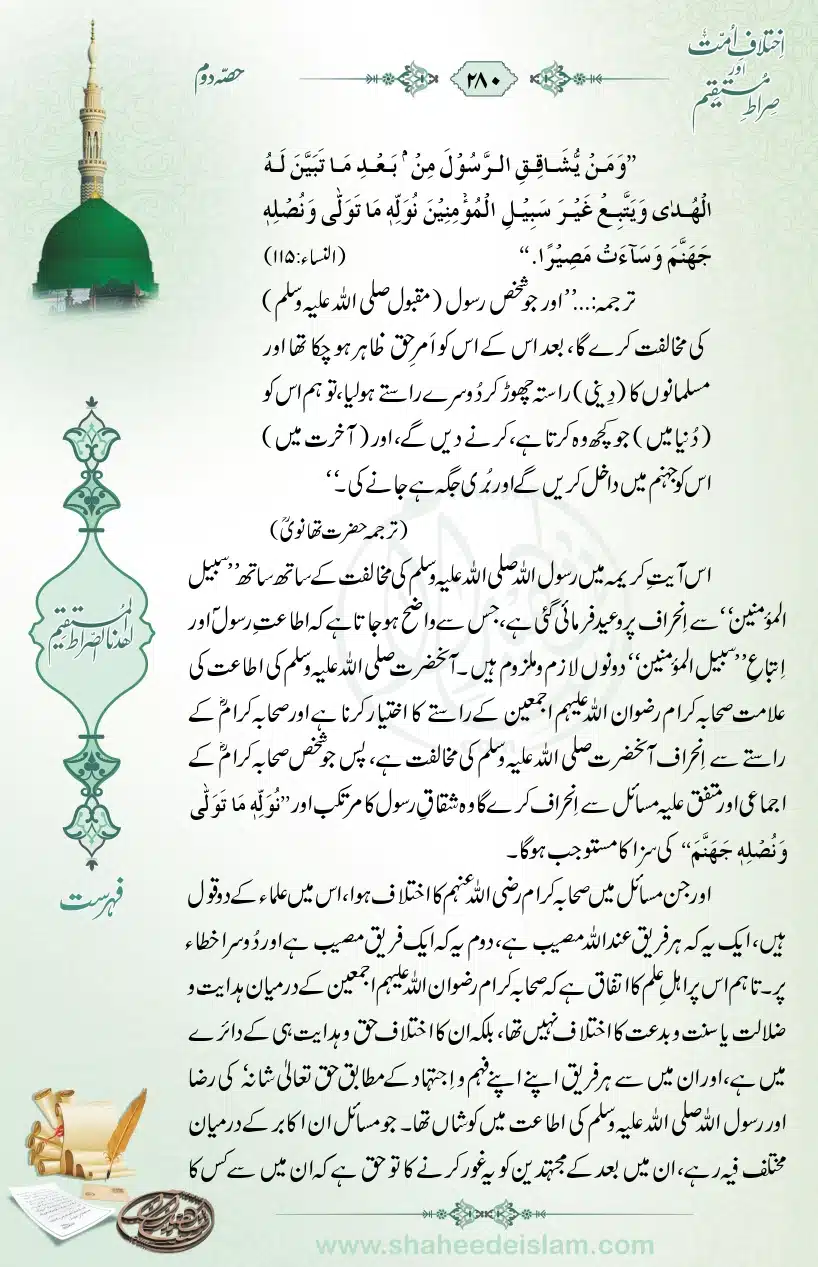 اِختلافِ اُمّت
اور
صراطِ مُستقیم
۲۸۰
حصّہ دوم
”وَمَنْ يُّشَاقِقِ الرَّسُوْلَ مِنْۢ بَعْدِ مَا تَبَيَّنَ لَهُ
الْهُدٰى وَيَتَّبِعْ غَيْرَ سَبِيْلِ الْمُؤْمِنِيْنَ نُوَلِّهٖ مَا تَوَلّٰى وَنُصْلِهٖ
جَهَنَّمَ وَسَآءَتْ مَصِيْرًا.“ (النساء:۱۱۵)
ترجمہ:...”اور جو شخص رسول (مقبول صلی اللہ علیہ وسلم)
کی مخالفت کرے گا، بعد اس کے اس کو اَمرِ حق ظاہر ہوچکا تھا اور
مسلمانوں کا (دِینی) راستہ چھوڑ کر دُوسرے راستے ہولیا، تو ہم اس کو
(دُنیا میں) جو کچھ وہ کرتا ہے، کرنے دیں گے، اور (آخرت میں)
اس کو جہنم میں داخل کریں گے اور بُری جگہ ہے جانے کی۔“
(ترجمہ حضرت تھانویؒ)
اس آیتِ کریمہ میں رسول اللہ صلی اللہ علیہ وسلم کی مخالفت کے ساتھ ساتھ ”سبیل
المؤمنین“ سے اِنحراف پر وعید فرمائی گئی ہے، جس سے واضح ہوجاتا ہے کہ اطاعتِ رسولؐ اور
اِتباعِ ”سبیل المؤمنین“ دونوں لازم وملزوم ہیں۔ آنحضرت صلی اللہ علیہ وسلم کی اطاعت کی
علامت صحابہ کرام رضوان اللہ علیہم اجمعین کے راستے کا اختیار کرنا ہے اور صحابہ کرامؓ کے
راستے سے اِنحراف آنحضرت صلی اللہ علیہ وسلم کی مخالفت ہے، پس جو شخص صحابہ کرامؓ کے
اجماعی اور متفق علیہ مسائل سے اِنحراف کرے گا وہ شقاقِ رسول کا مرتکب اور ”نُوَلِّهٖ مَا تَوَلّٰى
وَنُصْلِهٖ جَهَنَّمَ“ کی سزا کا مستوجب ہوگا۔
اور جن مسائل میں صحابہ کرام رضی اللہ عنہم کا اختلاف ہوا، اس میں علماء کے دو قول
ہیں، ایک یہ کہ ہر فریق عنداللہ مصیب ہے، دوم یہ کہ ایک فریق مصیب ہے اور دُوسرا خطاء
پر۔ تاہم اس پر اہلِ علم کا اتفاق ہے کہ صحابہ کرام رضوان اللہ علیہم اجمعین کے درمیان ہدایت و
ضلالت یا سنت و بدعت کا اختلاف نہیں تھا، بلکہ ان کا اختلاف حق و ہدایت ہی کے دائرے
میں ہے، اور ان میں سے ہر فریق اپنے اپنے فہم و اِجتہاد کے مطابق حق تعالیٰ شانہٗ کی رضا
اور رسول اللہ صلی اللہ علیہ وسلم کی اطاعت میں کوشاں تھا۔ جو مسائل ان اکابر کے درمیان
مختلف فیہ رہے، ان میں بعد کے مجتہدین کو یہ غور کرنے کا تو حق ہے کہ ان میں سے کس کا
اِهْدِنَا الصِّرَاطَ الْمُسْتَقِيْمَ
فہرست
www.shaheedeislam.com